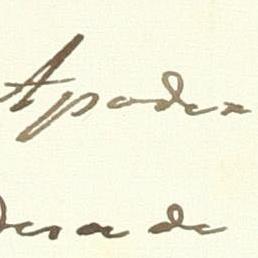 Apoder
dera de